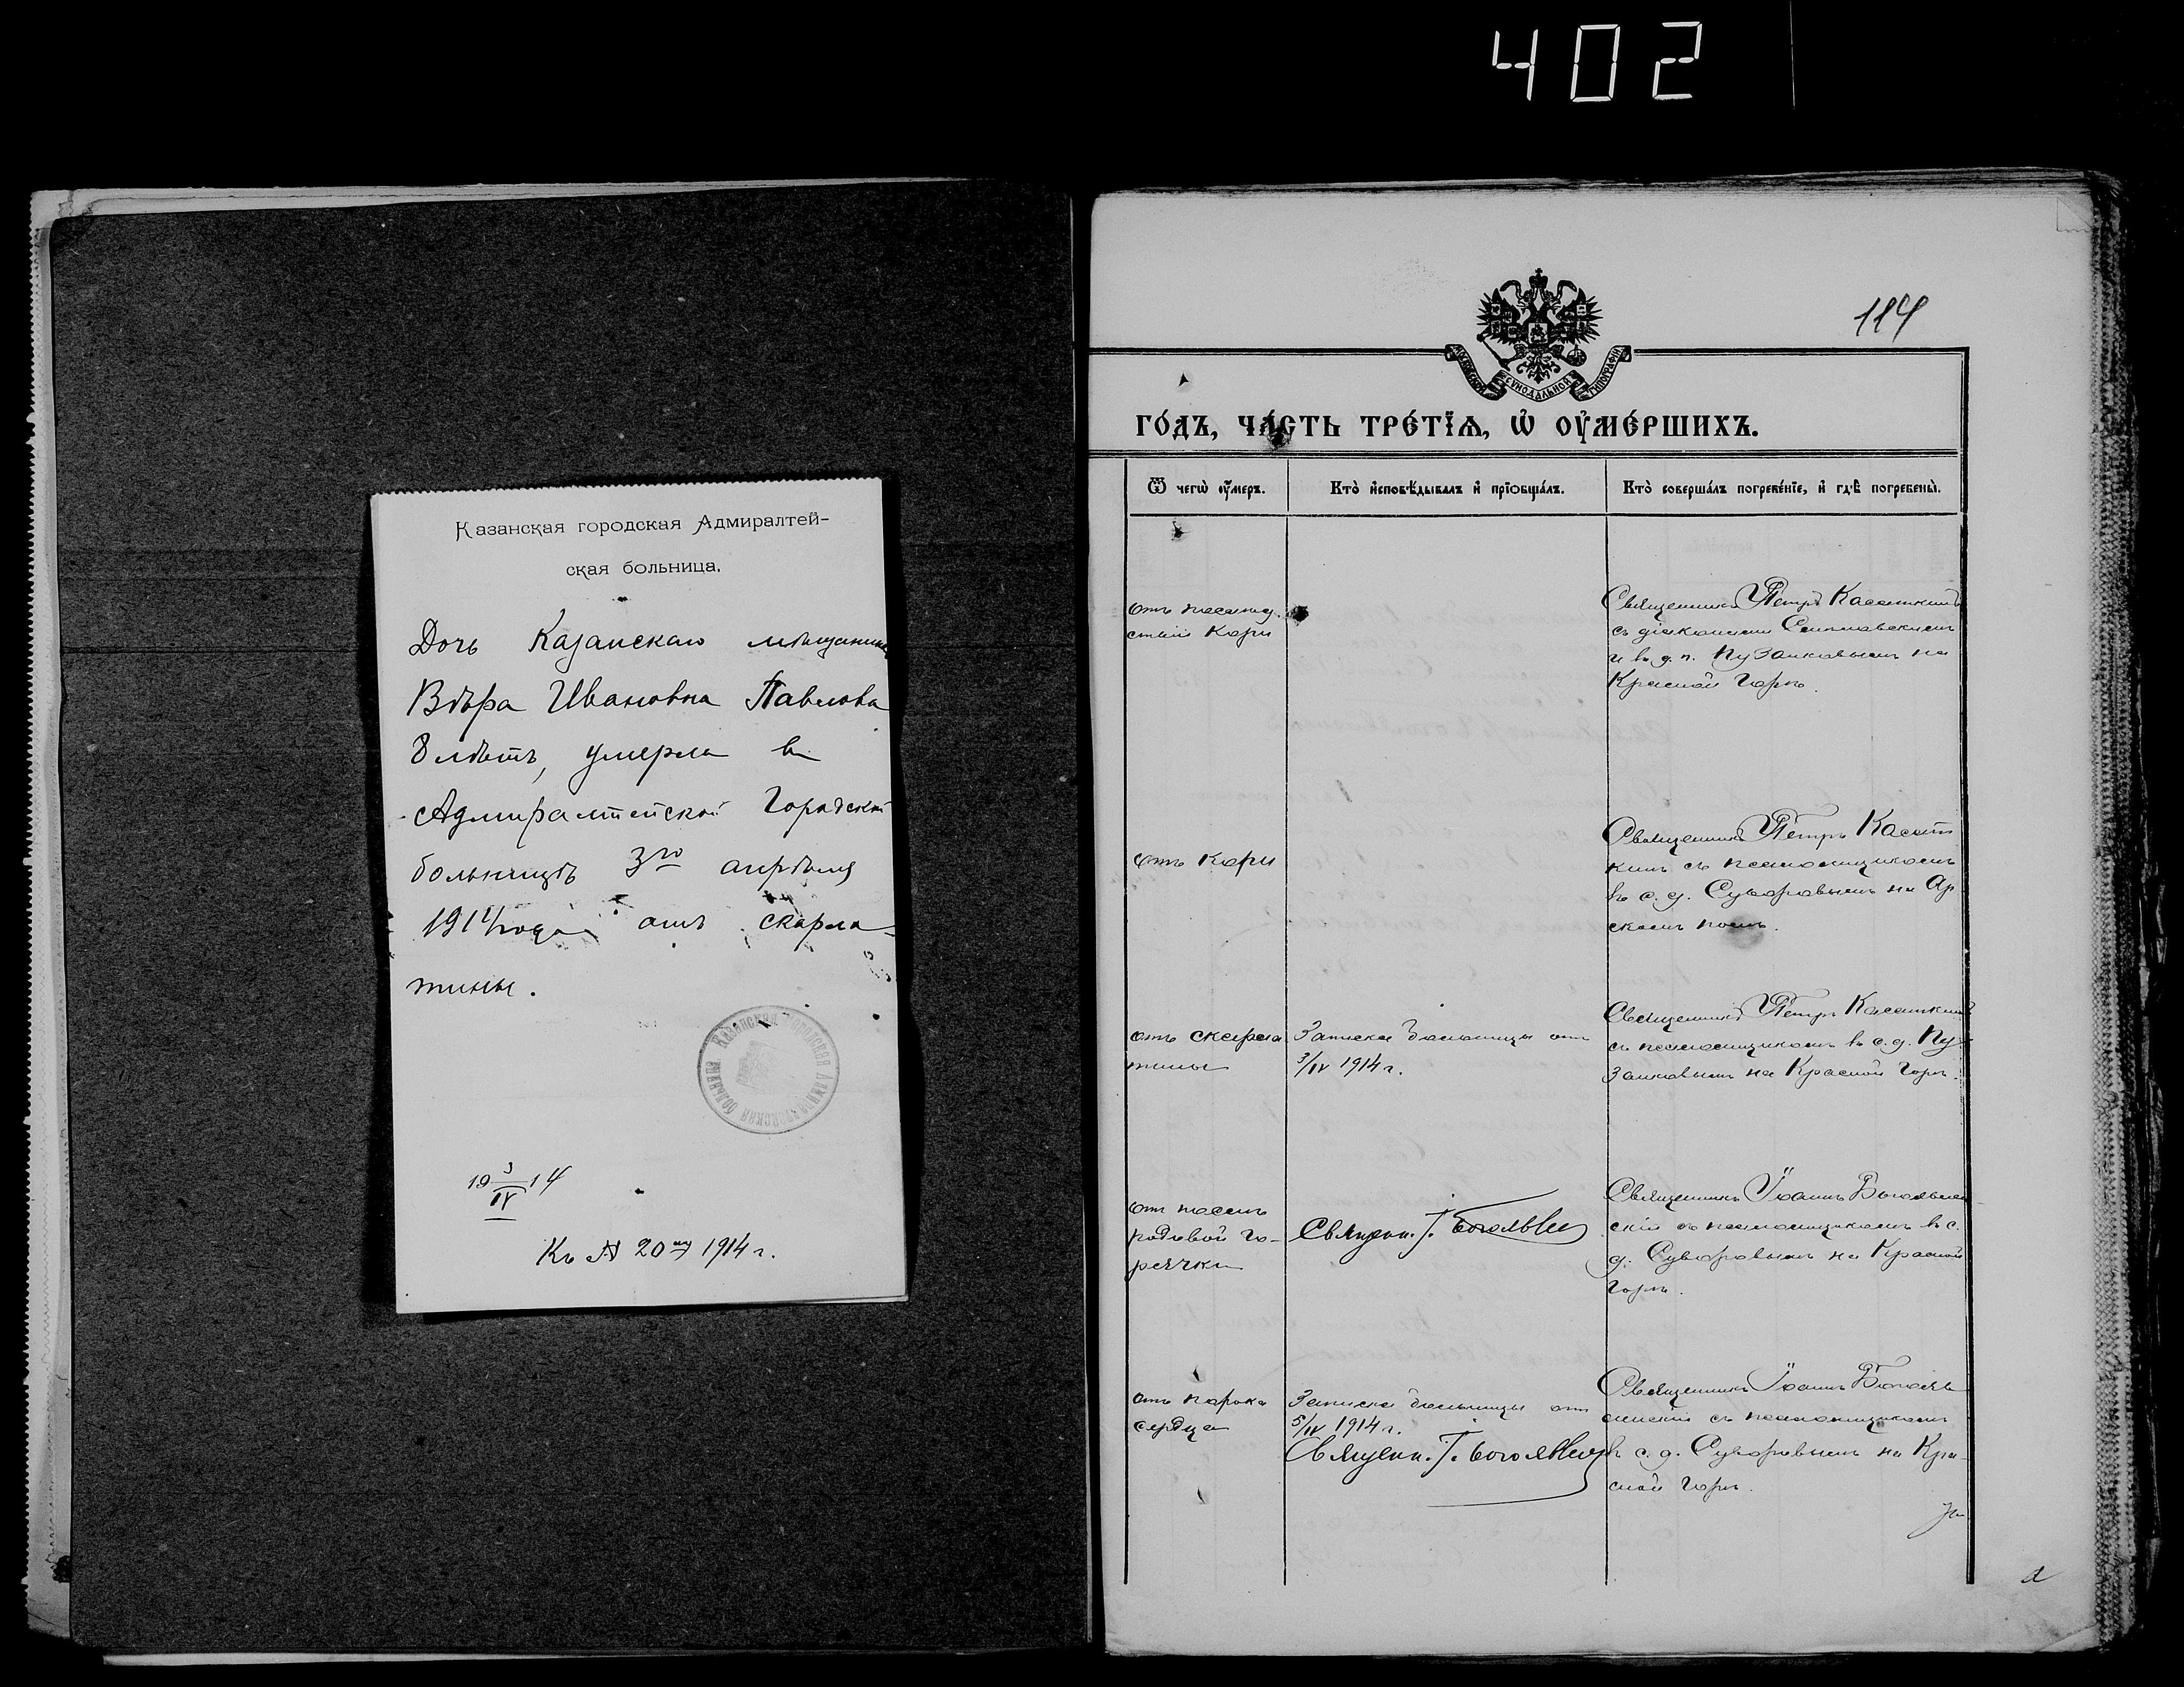 402
Казанская городская Адмиралтей-
ская больница.
Дочь Казанскаго мѣщанина
Вѣра Ивановна Павлова
8 лѣтъ, умерла въ
Адмиралтейской Городской
больницѣ 3го апрѣля
1914 года отъ скарла-
тины.
Казанская городская Адмиралтейская больница
19 3/IV 14
Къ № 20му 1914 г.
114
МОСКОВСКОЙ СѴНОДАЛЬНОЙ ТИПОГРАФІИ
ГО́ДЪ, ЧА́СТЬ ТРЕ́ТЇѦ, Ѡ҆ ОУ҆МЕ́РШИХЪ.
Ѿ чегѡ̀ оу҆́меръ.
Кто̀ и҆сповѣ́дывалъ и҆ прїобща́лъ.
Кто̀ соверша́лъ погребе́нїе, и҆ гдѣ̀ погребены̀.
стью кори
Священникъ Петръ Касаткинъ
съ діакономъ
и в. д. п. Пузанковымъ на
Красной Горѣ.
отъ кори
Священникъ Петръ Касат
кинъ съ псаломщикомъ
в. с. д. Суворовымъ на Ар
скомъ полѣ.
отъ скарла
тины
Записка больницы отъ
3/IV 1914 г.
Священникъ Петръ Касаткинъ
съ псаломщикомъ в. с. д. Пу
занковымъ на Красной Горѣ.
отъ послѣ
родовой го-
рячки
Священ. І. Боголѣ
Священникъ Іоаннъ Боголѣ
скій съ псаломщикомъ в. с.
д. Суворовымъ на Красной
Горѣ.
отъ порока
сердца
Записка больницы отъ
5/IV 1914 г.
Священ. І. Боголѣ
Священникъ Іоаннъ
съ псаломщикомъ
в. с. д. Суворовымъ на Кра-
сной Горѣ.